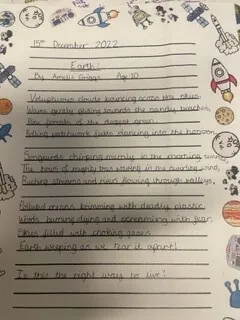 15th December 2022
Earth!
By Amelia Griggs Age 10
Voluptuous clouds bouncing across blue skies,
Waves gently gliding towards the sandy beaches,
Pine forests of the deepest green,
Rolling patchwork fields dancing into the horizon.
Songbirds chirping merrily in the morning sunrise,
The trees of mighty oaks waving in the swirling wind,
Rushing streams and rivers flowing through valleys,
Polluted oceans brimming with deadly plastic
Woods burning dying and screaming with fear,
Skies filled with choking gases
Earth weeping as we tear it apart!
Is this the right way to live?